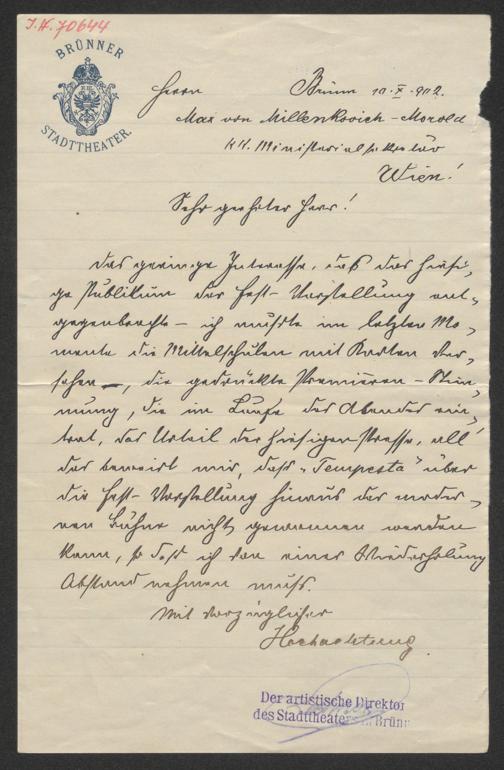 I.N. 70644
BRÜNNER
STADTTHEATER.
Herrn Brünn 10.X.902.
Max von Millenkovich-Morold
KK. Ministerialsekretär
Wien!
Sehr geehrter Herr!
Das geringe Interesse, daß das hiesi-
ge Publikum der Fest-Vorstellung ent-
gegenbrachte – ich mußte im letzten Mo-
mente die Mittelschulen mit Karten ver-
sehen –, die gedrückte Premièren-Stim-
mung, die im Laufe des Abendes ein-
trat, das Urteil der hiesigen Presse, all
das beweist mir, dass "Tempesta" über
die Fest-Vorstellung hinaus der moder-
nen Bühne nicht gewonnen werden
kann, so daß ich von einer Wiederholung
Abstand nehmen muss.
Mit vorzüglicher
Hochachtung
Der artistische Direktor
des Stadttheaters in Brünn